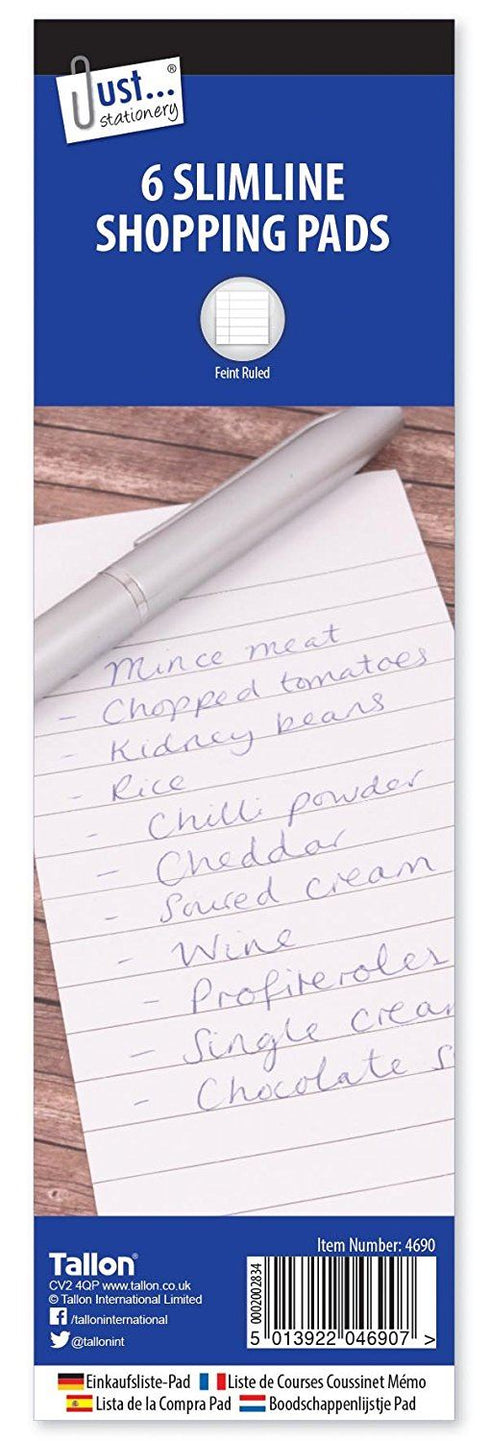 Just... ®
stationery
6 SLIMLINE
SHOPPING PADS
Feint Ruled
Mince meat
- Chopped tomatoes
- Kidney beans
- Rice
- Chilli powder
- Cheddar
- Soured cream
- Wine
- Profiteroles
- Single crea
- Chocolate s
Item Number: 4690
Tallon®
CV2 4QP www.tallon.co.uk
© Tallon International Limited
/talloninternational
@tallonint
0002002834
5 013922 046907 >
Einkaufsliste-Pad Liste de Courses Coussinet Mémo
Lista de la Compra Pad Boodschappenlijstje Pad